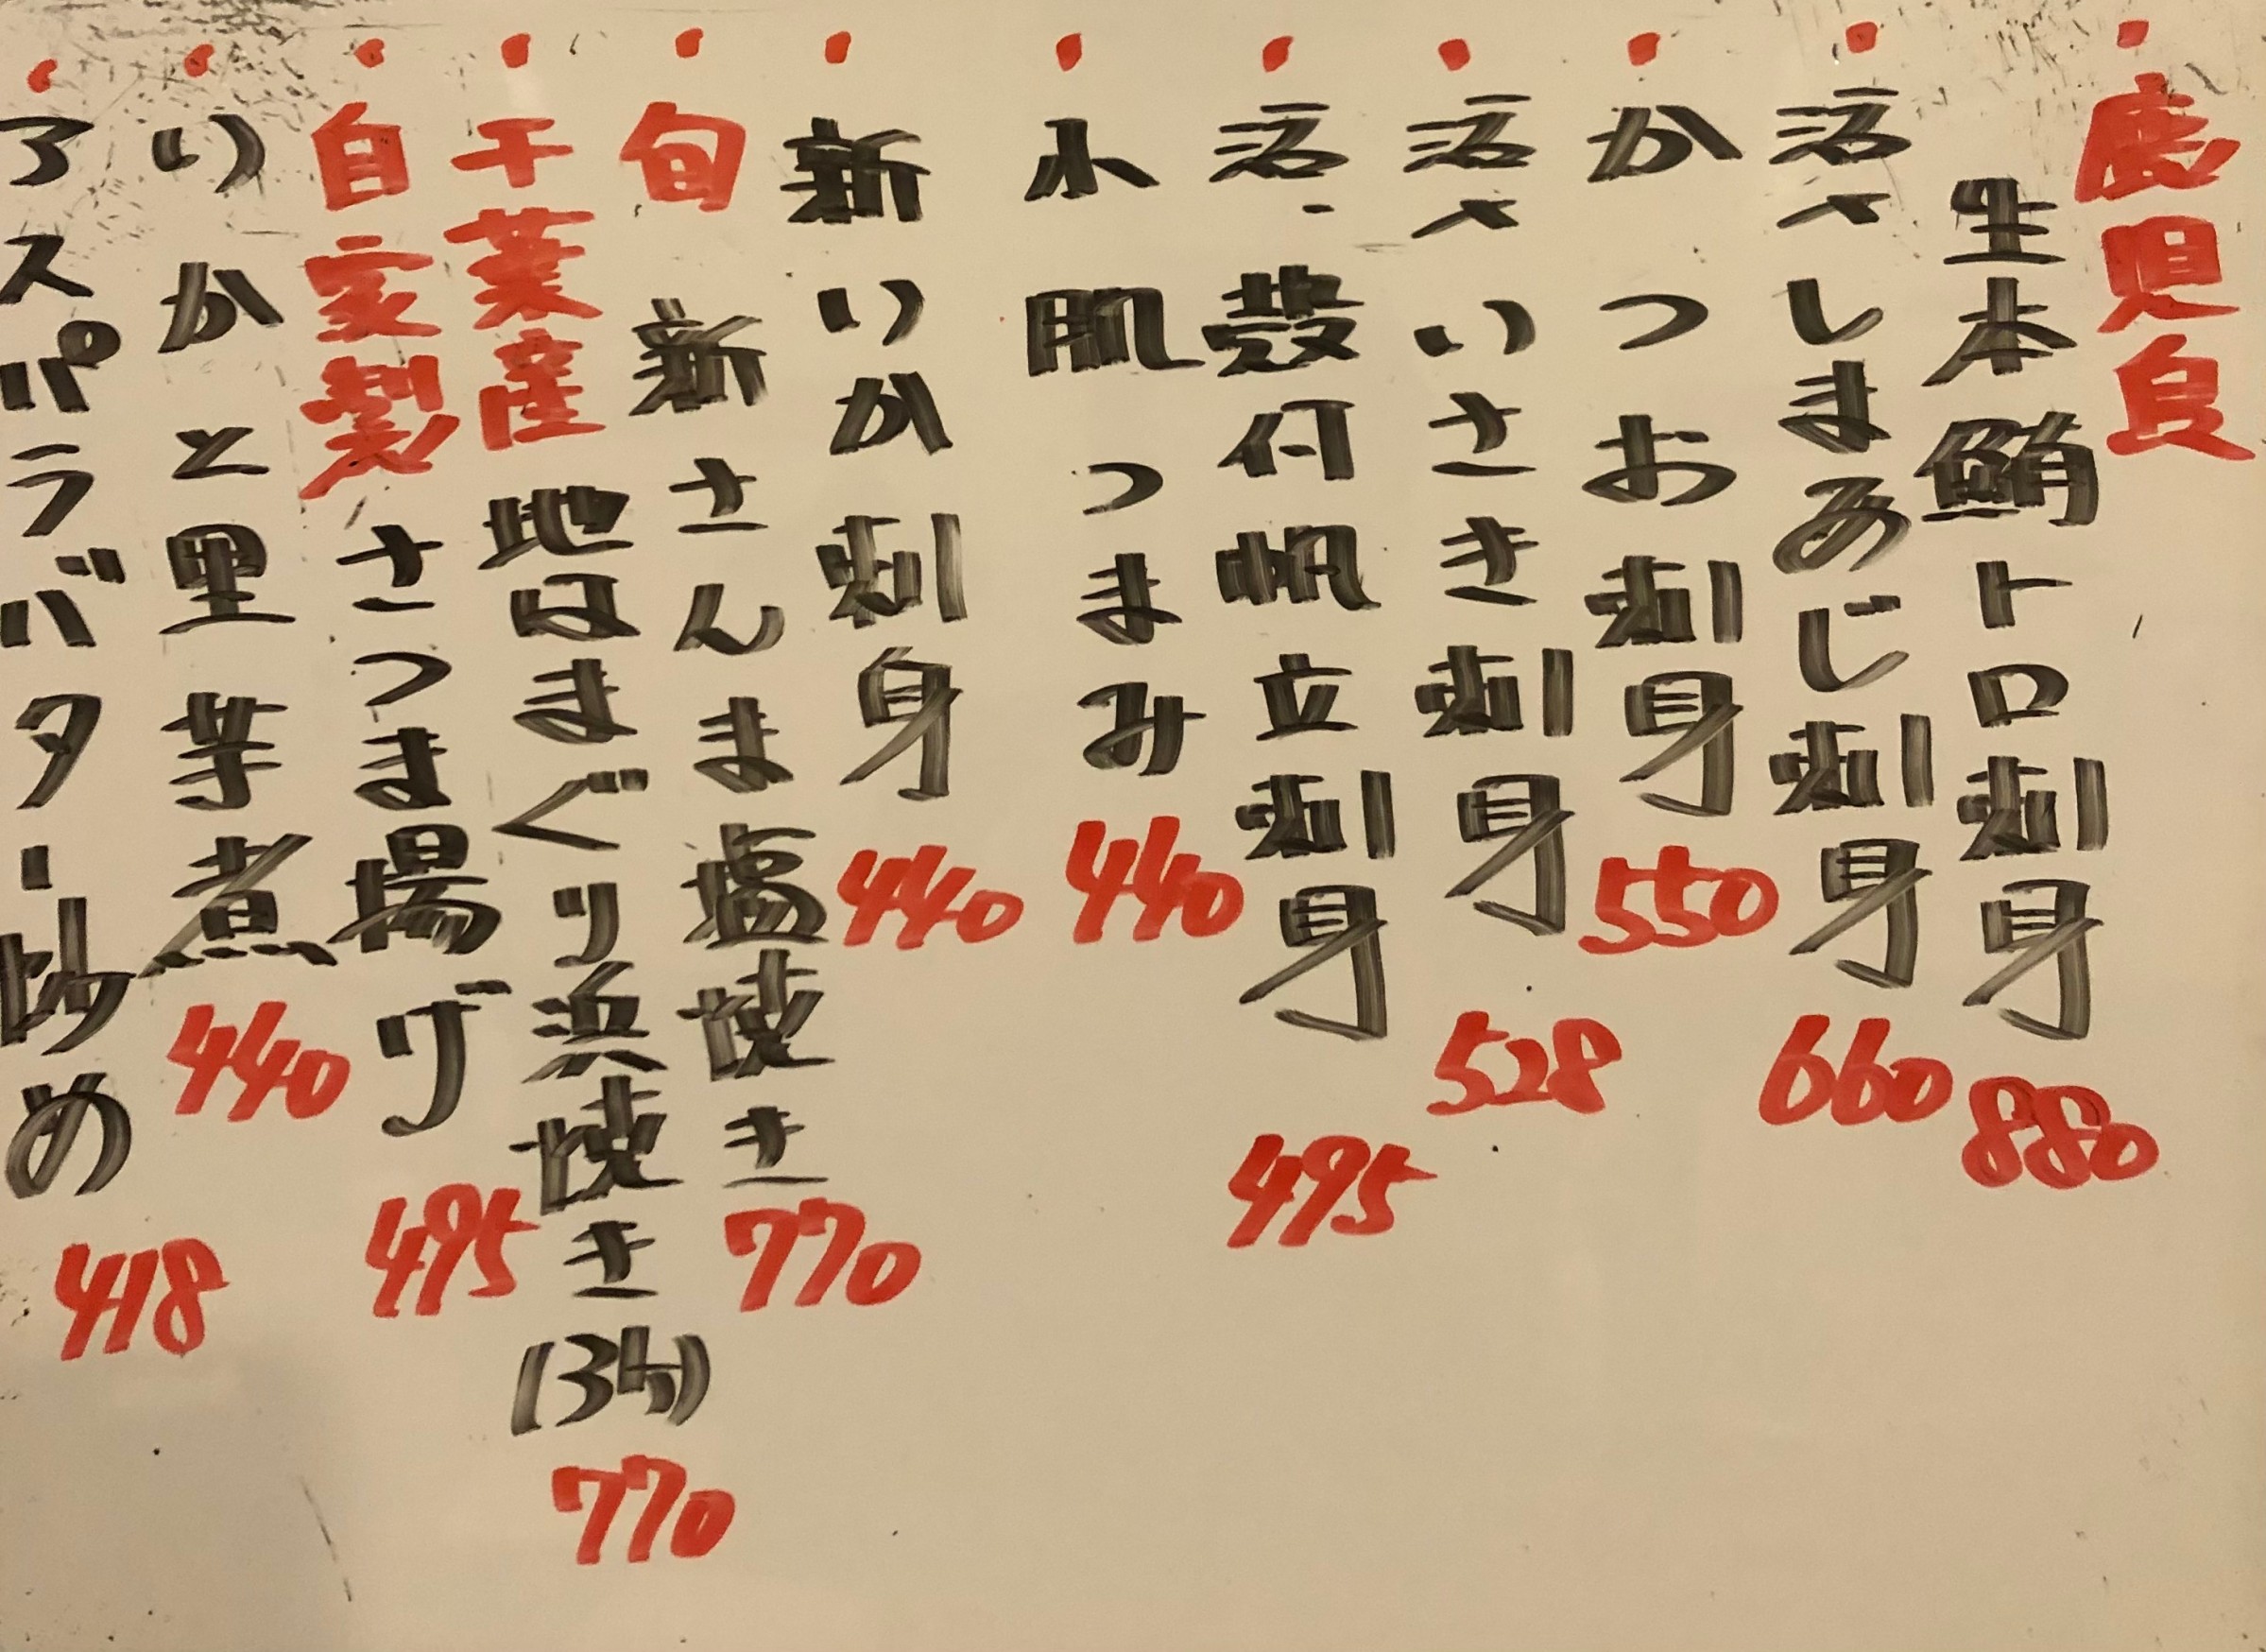 ・鹿児島
生本鮪トロ刺身 880
・活〆しまあじ刺身 660
・かつお刺身 550
・活〆いさき刺身 528
・活・殻付帆立刺身 495
・小肌つまみ 440
・新いか刺身 440
・旬 新さんま塩焼き 770
・千葉産 地はまぐり浜焼き(3ヶ) 770
・自家製 さつま揚げ 495
・いかと里芋煮 440
・アスパラバター炒め 418